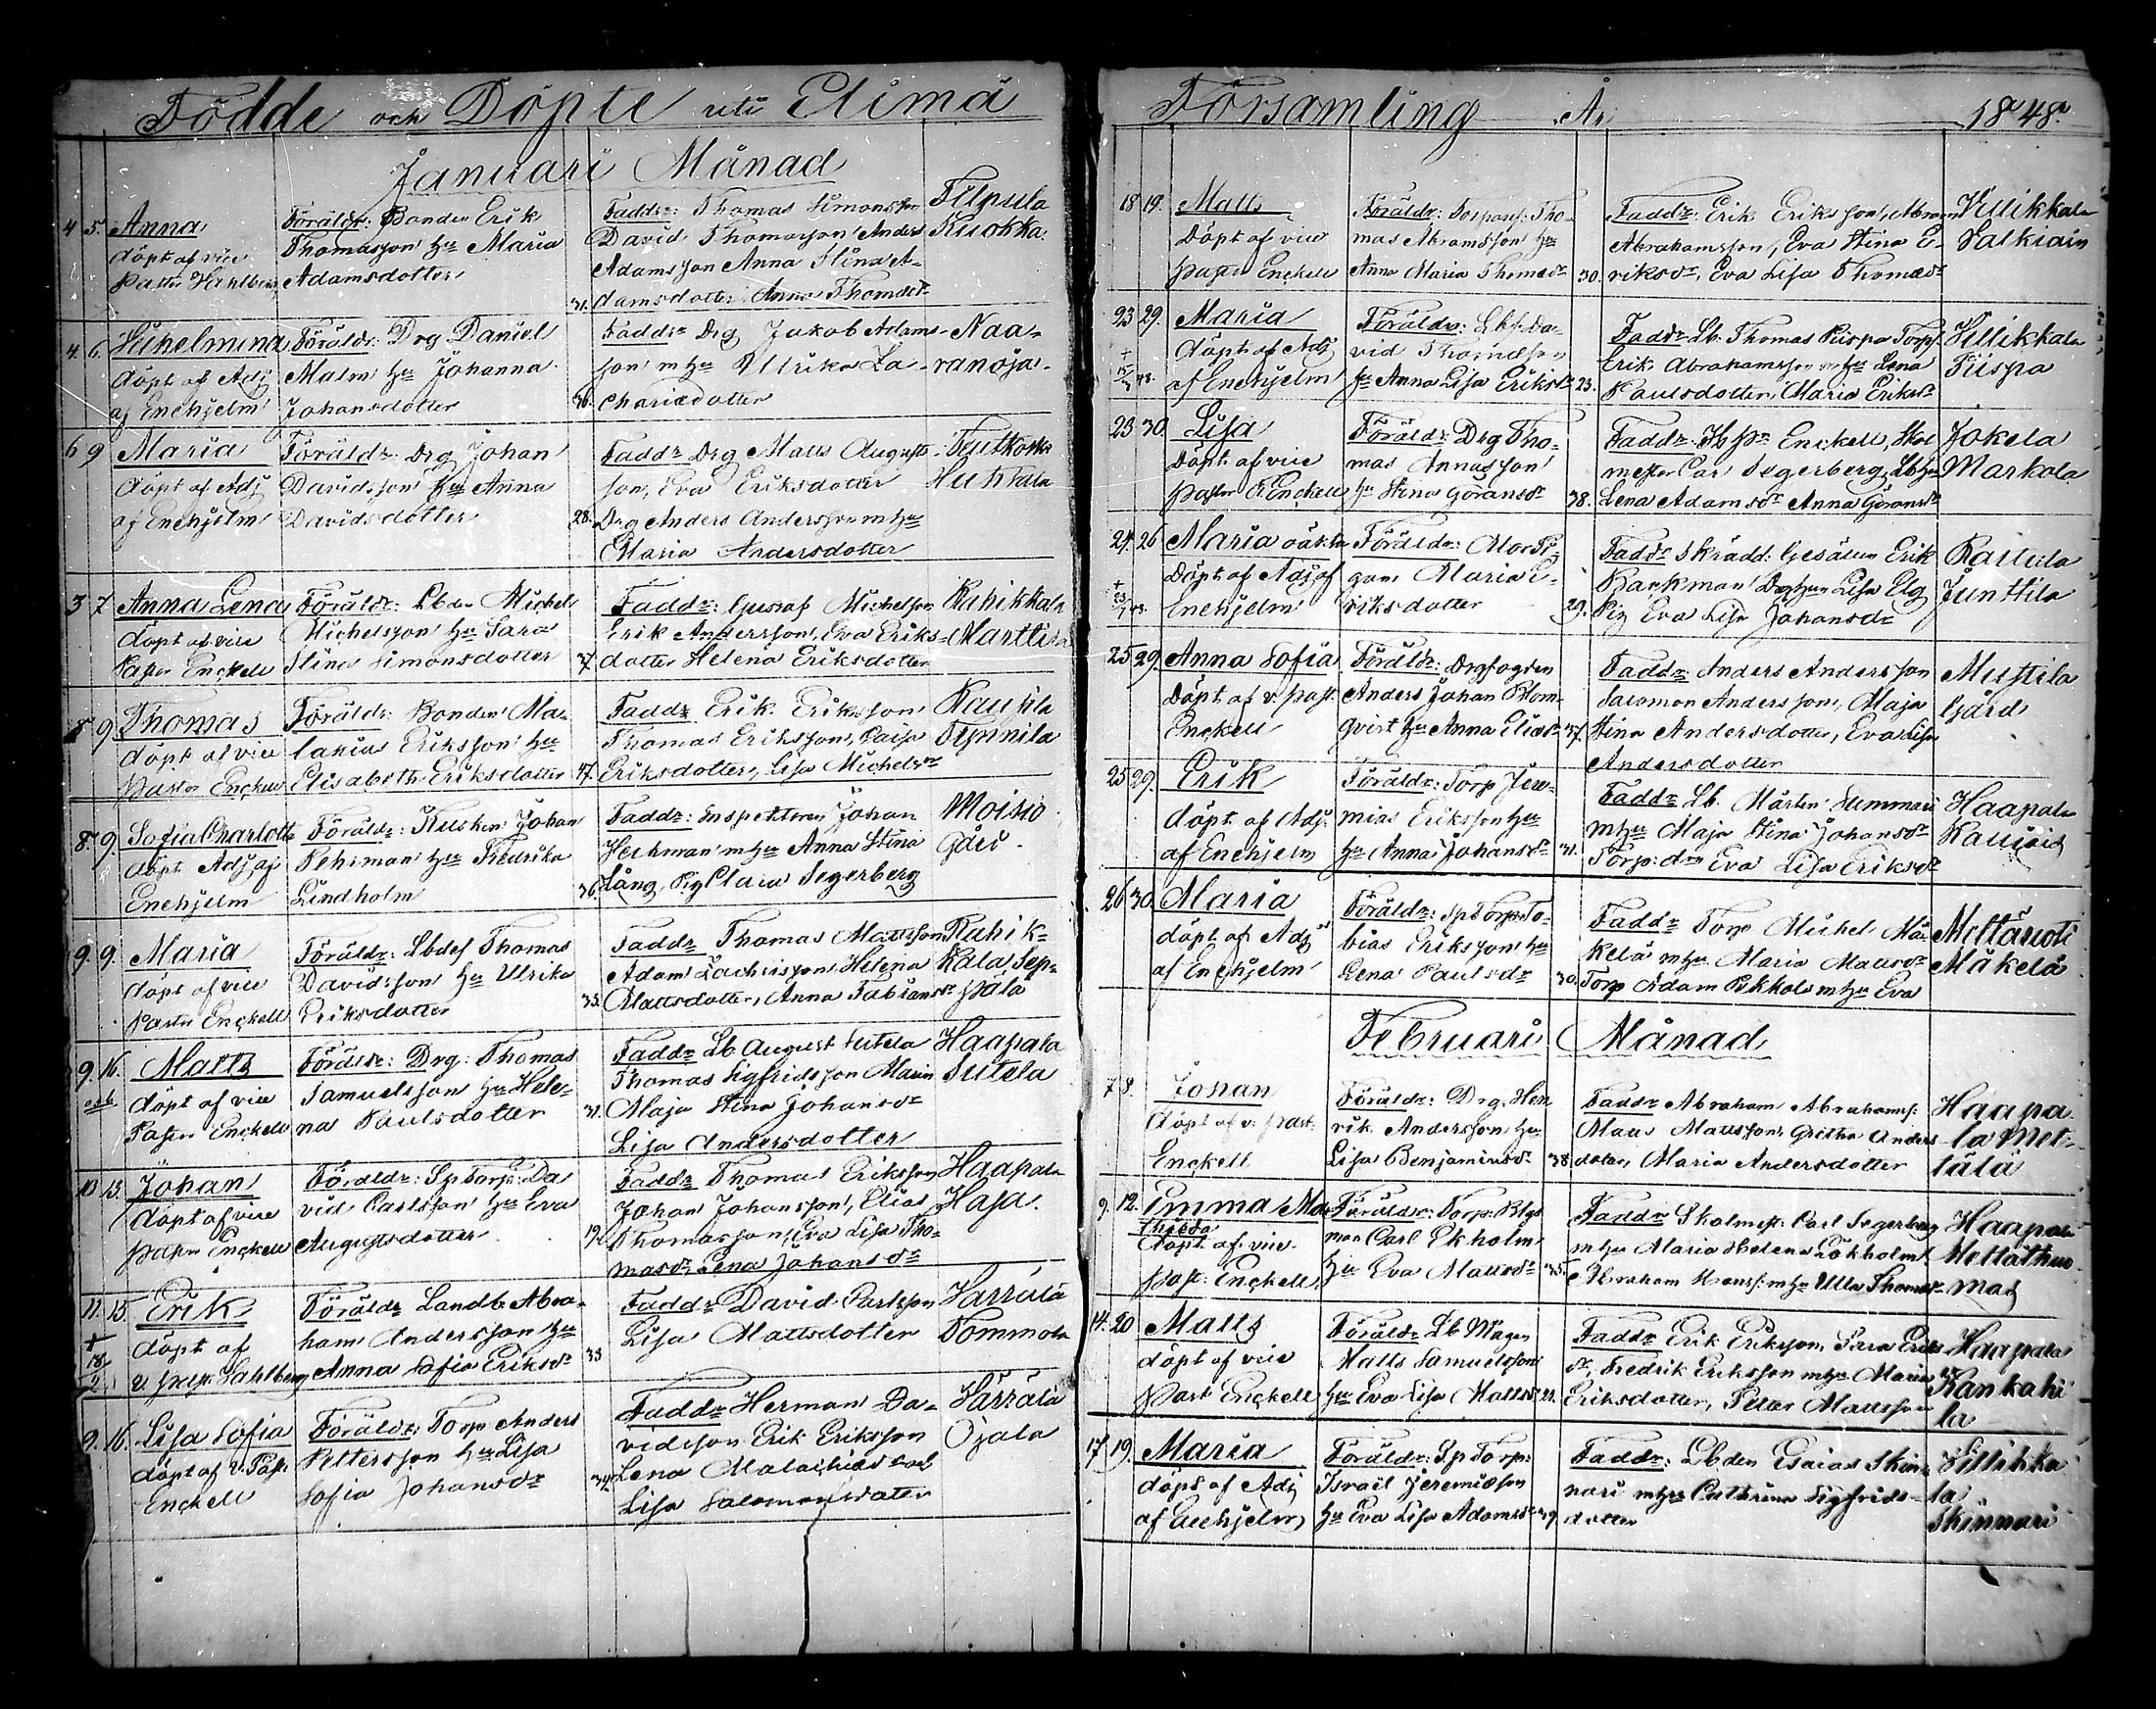 Födde och Döpte uti Elimä
Januari Månad
4 5. Anna
döpt af vice
Pastor Sahlberg
Föräldr: Bonden Erik
Thomasson hu Maria
Adamsdotter
31.
Faddr: Thomas Simonsson
David Thomasson Anders
Adamsson Anna Stina A-
damsdotter Anna Thomdr
Filpula
Kuokka
4. 6. Wilhelmina
döpt af Adj
af Enehjelm
Föräldr: Drg Daniel
Malm hu Johanna
Johansdotter
36.
Faddr Drg Jakob Adams-
son m hu Ullrika Za-
chariædotter
Naa-
ranoja.
6 9 Maria
döpt af Adj
af Enehjelm
Föräldr. Drg Johan
Davidsson hu Anna
Davidsdotter
28.
Faddr Drg Matts Augusts-
son, Eva Eriksdotter
Drg Anders Andersson m hu
Maria Andersdotter
3 7 Anna Lena
döpt af vice
Pastor Enckell
Föräldr: Lbdn Michel
Michelsson hu Sara
Stina Simonsdotter
37.
Faddr: Gustaf Michelsson
Erik Andersson, Eva Eriks-
dotter Helena Eriksdotter
Rahikkala
Marttila
8 9. Thomas
döpt af vice
Pastor Enckell
Föräldr: Bonden Ma-
lakias Eriksson hu
Elisabeth Eriksdotter
47.
Faddr Erik Eriksson
Thomas Eriksson, Caisa
Eriksdotter, Lisa Michelsdr
Raussila
8. 9. Sofia Charlotta
döpt Adj af
Enehjelm
Föräldr: Kusken Johan
Pehrman hu Fredrika
Lindholm
36.
Faddr: Inspektoren Johan
Heckman m hu Anna Stina
Lång, Pig Clara Segerberg
Moisio
gård.
9. 9. Maria
döpt af vice
Pastor Enckell
Föräldr: Lbdes Thomas
Davidsson hu Ulrika
Eriksdotter
33.
Faddr Thomas Mattsson
Adam Zachrisson Helena
Mattsdotter, Anna Fabiansdr
Rahik-
kala Sep-
pälä
9. 16. Matts
döpt af vice
Pastor Enckell
Föräldr: Drg: Thomas
Samuelsson hu Hele-
na Paulsdotter
31.
Faddr Lb August Sutela
Thomas Sigfridsson Maria
Maja Stina Johansdr
Lisa Andersdotter
Haapala
Sutela
10 13. Johan
döpt af vice
Pastor Enckell
Föräldr: Sp Torp: Da
vid Carlsson hu Eva
Augustsdotter
19.
Faddr Thomas Eriksson
Johan Johansson, Elias
Thomasson, Eva Lisa Tho-
masdr, Lena Johansdr
Haapala
Haja.
11. 15. Erik
† 18/2
döpt af
v. past. Sahlberg
Föräldr Landb Abra-
ham Andersson hu
Anna Sofia Eriksdr
33
Faddr David Carlsson
Lisa Mattsdotter
Värrälä
Tommola
9. 16. Lisa Sofia
döpt af V. Past.
Enckell
Föräldr: Torp Anders
Pettersson hu Lisa
Sofia Johansdr
34.
Faddr Herman Da-
vidsson Erik Eriksson
Lena Malachias dotr
Lisa Salomonsdotter
Värrälä
Ojala
Församling År 1848.
18 19. Matts
Döpt af vice
pastor Enckell
Föräldr: Torparf: Tho-
mas Abramsson hu
Anna Maria Thomædr
30.
Faddr Erik Eriksson, Abram
Abrahamsson, Eva Stina E-
riksdr, Eva Lisa Thomædr
Villikkala
Salkiain
23 29. Maria
döpt af Adj
af Enehjelm
Föräldr: Lbs. Da-
vid Thomasson
hu Anna Lisa Eriksdr
23.
Faddr Lb. Thomas Piispa Torp.
Erik Abrahamsson m hu Lena
Paulsdotter, Maria Eriksdr
Villikkala
Piispa
23 30 Lisa
Döpt af vice
pastor Enckell
Föräldr Drg Tho-
mas Annasson
hu Stina Göransdr
38.
Faddr Hspr Enckell, Skol
mester Carl Segerberg, Lbhu
Lena Adamsdr Anna Göransdr
Jokela
Markola
24. 26 Maria oäkta
Döpt af Adj af
Enehjelm
Föräldr: Mor Pi-
gan Maria E-
riksdotter
29.
Faddr Skrädd: Gesällen Erik
Backman Drghun Lisa Elg
Pig Eva Lisa Johansdr
Rattula
Junttila
25 29. Anna Sofia
Döpt af v. past.
Enckell
Föräldr: Drgfogden
Anders Johan Blom-
qvist hu Anna Eliædr
37.
Faddr Anders Andersson
Salomon Andersson, Maja
Stina Andersdotter, Eva Lisa
Andersdotter
Mustila
Gård
25 29. Erik
döpt af Adj.
af Enehjelm
Föräldr: Torp Jere-
mias Eriksson hu
hu Anna Johansdr
31.
Faddr Lb. Mårten Summari
m hu Maja Stina Johansdr
Torp: Eva Lisa Eriksdr
Haapala
26 30 Maria
döpt af Adj
af Enehjelm
Föräldr: Sp Torp To-
bias Eriksson hu
Lena Paulsdr
30.
Faddr Torp Michel Mä-
kelä m hu Maria Mattsdr
Torp Adam Pekkola m hu Eva
Mäkelä
Februari Månad
7 8. Johan
Döpt af v: past:
Enckell
Föräldr: Drg. Hen
rik Andersson hu
Lisa Benjaminsdr
38.
Faddr Abraham Abrahamss:
Matts Mattsson, Gretha Anders-
doter, Maria Andersdotter
Haapa
la Met-
tälä
9. 12. Emma Ma
thilda
Döpt af vice
past: Enckell
Föräldr: Torp: Blyt
man Carl Ekholm
hu Eva Mattsdr
35.
Faddr Skolmest: Carl Segerberg
m hu Maria Helena Lökholm
Abraham Hanss: m hu Ulla Thomædr
Haapala
14. 20 Matts
döpt af vice
Past Enckell
Föräldr Lb Mågen
Matts Samuelsson
hu Eva Lisa Mattsdr
22.
Faddr Erik Eriksson, Sara Eriks
dr, Fredrik Eriksson m hu Maria
Eriksdotter, Petter Mattsson
Haapala
Kankahi
la
17 19. Maria
döpt af Adj
af Enehjelm
Föräldr: Sp Torp:
Israel Jeremiæson
hu Eva Lisa Adamsdr
39.
Faddr: Lbden Esaias Skin-
nari m hu Cathrina Sigfrids-
dotter
Villikka
la
Skinnari